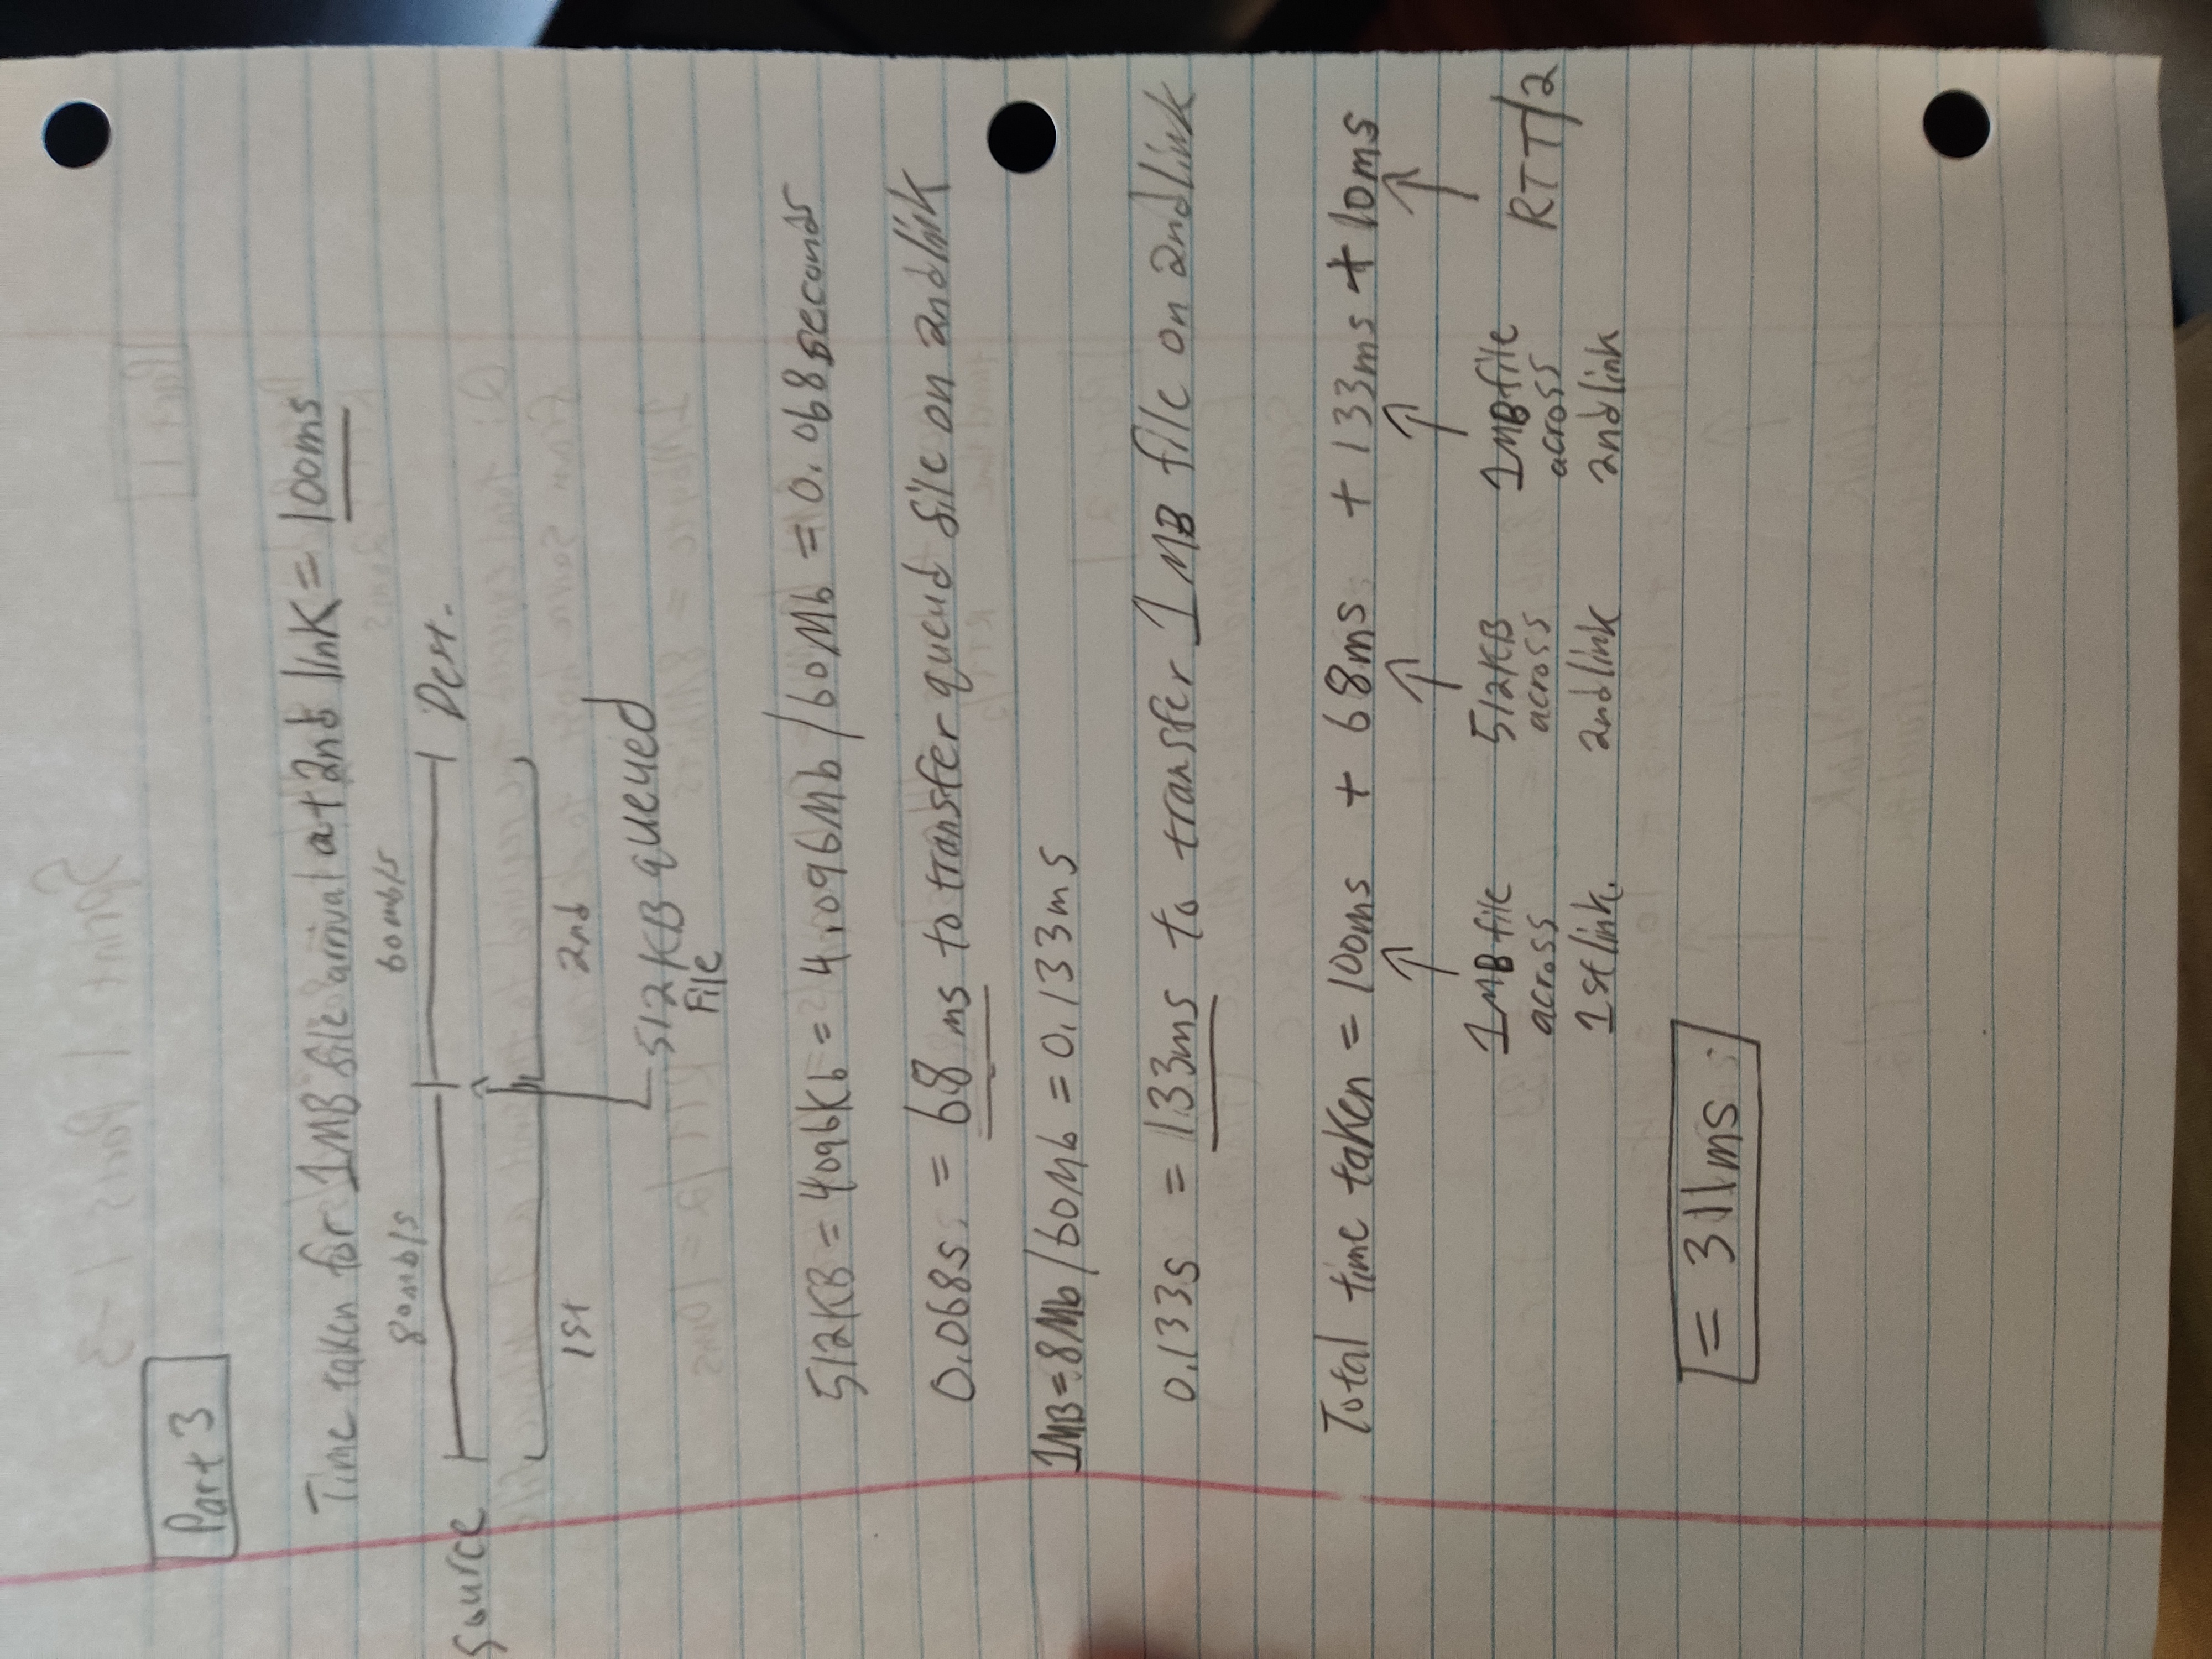 Part 3
Time taken for 1MB file arrival at 2nd link = 100ms
80mb/s 60mb/s
source Dest.
1st 2nd
512KB queued
File
512KB = 4096Kb = 4.096Mb/60Mb = 0.068seconds
0.068s. = 68 ms to transfer queud file on 2nd link
1MB=8Mb/60Mb = 0.133ms
0.133s = 133ms to transfer 1MB file on 2nd link
Total time taken = 100ms + 68ms + 133ms + 10ms
1MB file 512KB 1MB file RTT/2
across across across
1st link. 2nd link 2nd link
= 311ms